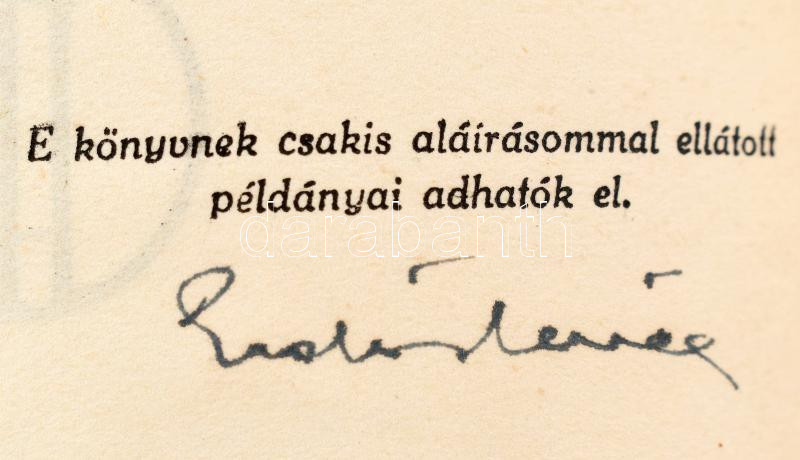 E könyvnek csakis aláírásommal ellátott
példányai adhatók el.
darabanth